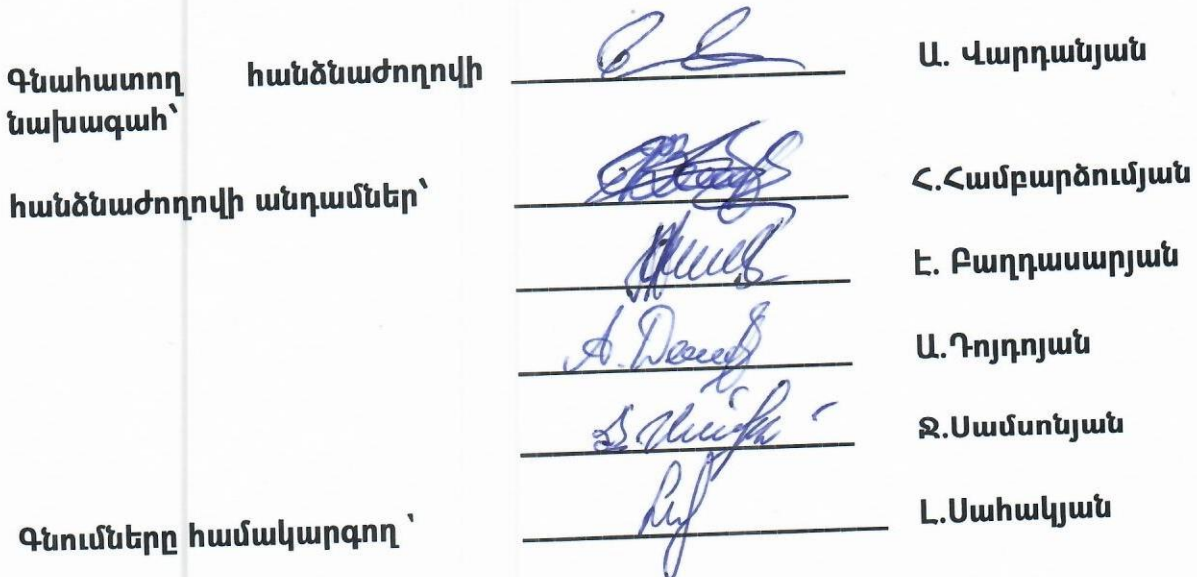 Գնահատող հանձնաժողովի Ա. Վարդանյան
նախագահ՝
հանձնաժողովի անդամներ՝ Հ.Համբարձումյան
Է. Բաղդասարյան
Ա.Դոյդոյան
Ջ.Սամսոնյան
Գնումները համակարգող ՝ Լ.Սահակյան